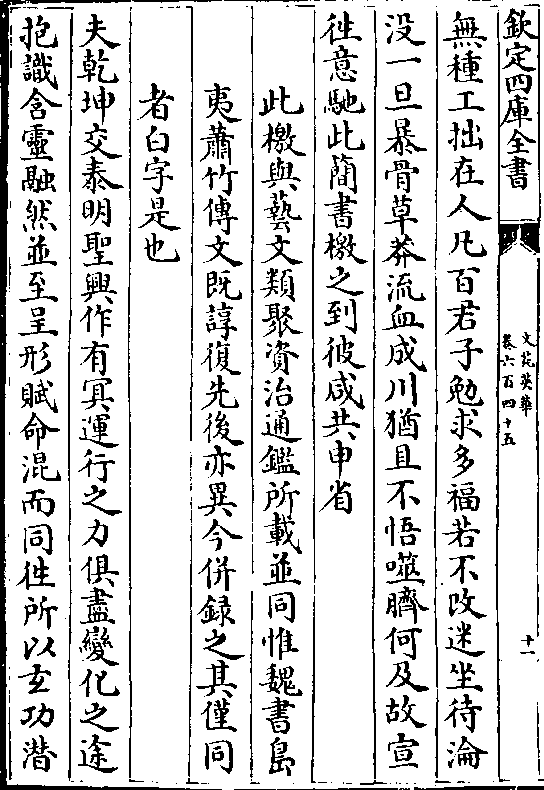 欽定四庫全書
文苑英華
卷六百四十五
十一
無種工拙在人凡百君子勉求多福若不改迷坐待淪
没一旦暴骨草莽流血成川猶且不悟噬臍何及故宣
徃意馳此簡書檄之到彼咸共申省
此檄與藝文類聚資治通鑑所載並同惟魏書島
夷蕭竹傳文既諄復先後亦異今併録之其僅同
者白字是也
夫乾坤交泰明聖興作有冥運行之力俱盡變化之途
抱識含靈融然並至呈形賦命混而同徃所以玄功潜